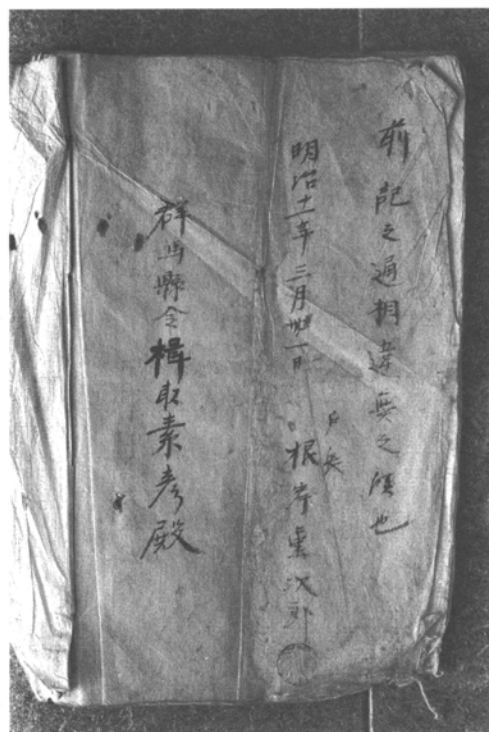 前記之通相違無之候也
明治十一年三月卅一日
戸長
根岸重次郎
群馬縣令楫取素彦殿